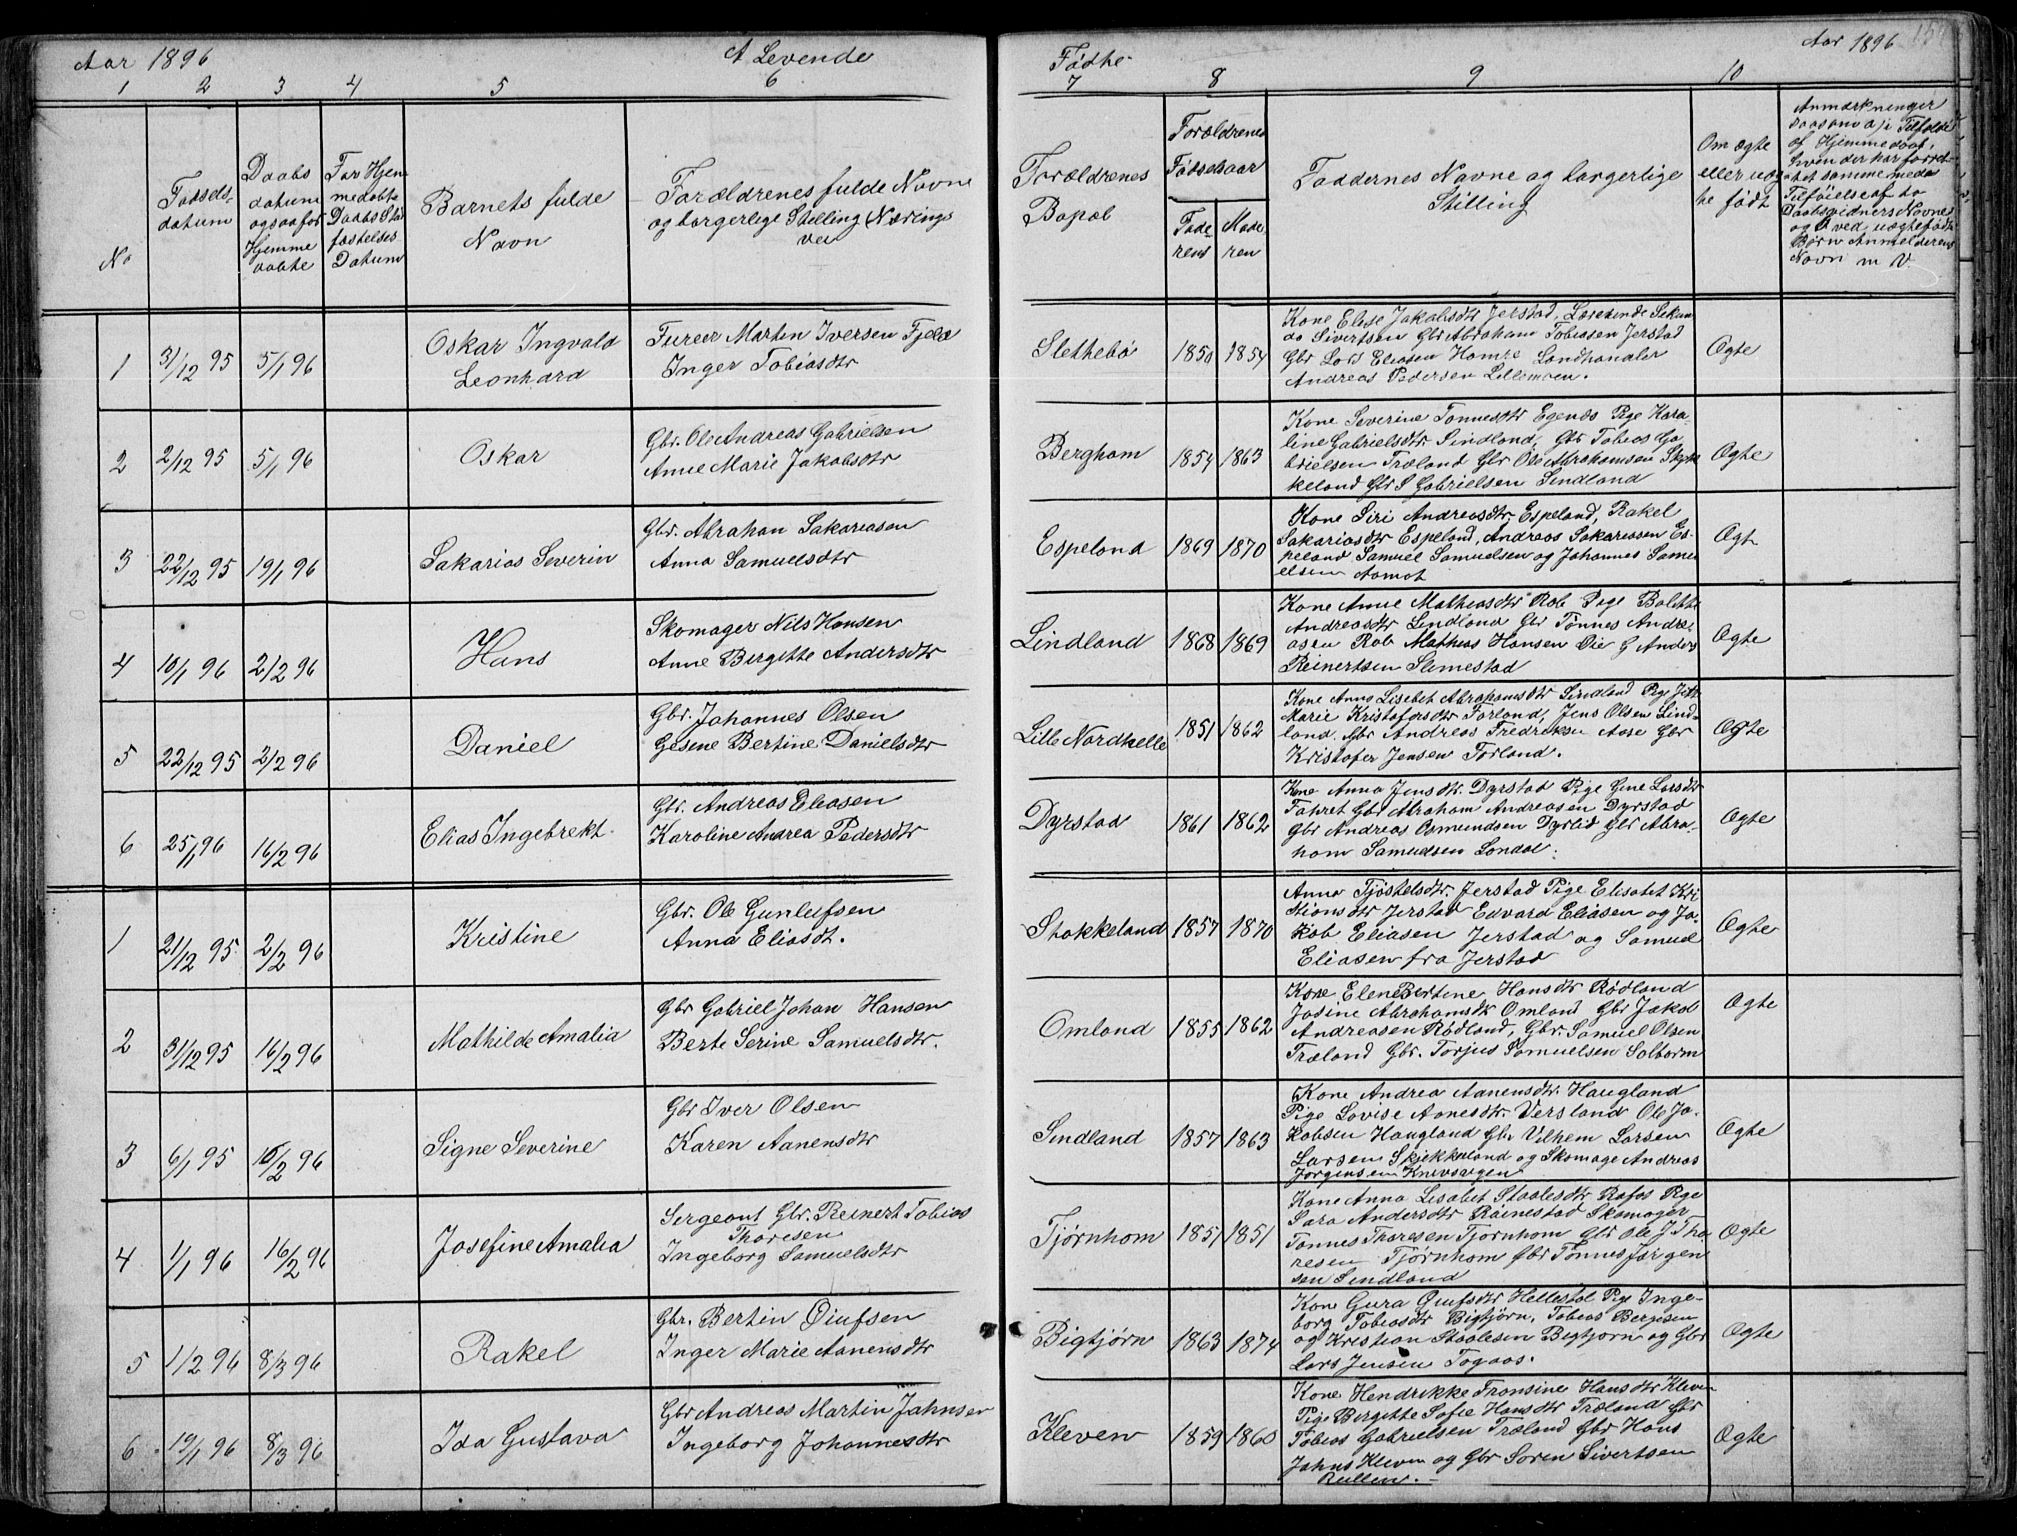 Aar 1896
A Levende
Fødte
Aar 1896
1 2 3 4 5 6 7 8 9 10
No
Fødsels-
datum
Daabs
datum
ogsaa for
Hjemme
døbte
For Hjem
medøbte
Daabs Stad
fæstelses
Datum
Barnets fulde
Navn
Forældrenes fulde Navne
og borgerlige Stelling Nærings
vei
Forældrenes
Bopæl
Forældrenes
Fødselsaar
Fade-
rens
Mode
ren
Faddernes Navne og borgerlige
Stilling
Om ægte
eller uæg
te født
Anmærkninger
saasom a) i Tilfælde
af Hjemmedaab,
hvem der har forret-
tet samme med
Tilføielse af to
Daabsvidners Navne
og b) ved uægtefødte
Børn Anmelderens
Navn m V.
1
31/12 95
5/1 96
Oskar Ingvald
Leonhard
Fureer Martin Iversen Fjeld
Inger Tobiasdtr
Slettebö
1850
1854
Kone Elise Jakobsdtr Jerstad,
do Sivertsen Gbr Abraham Tobiasen Jerstad
Gbr Lars Eliasen Homre Landhandler
Andreas Pedersen Lillemoen.
Ogte
2
2/12 95
5/1 96
Oskar
Gbr. Ole Andreas Gabrielsen
Anne Marie Jakobsdtr
Berghom
1854
1863
Kone Severine Tonnesdtr Egenes Pige Karo-
line Gabrielsdtr Sindland, Gbr Tobias Ga
brielsen Træland Gbr Ole Abrahamsen Stok
keland Gbr S Gabrielsen Sindland
Ogte
3
22/12 95
19/1 96
Sakarias Severin
Gbr. Abrahan Sakariasen
Anna Samuelsdtr
Espeland
1869
1870
Kone Siri Andreasdtr Espeland, Rakel
Sakariasdtr Espeland, Andreas Sakariasen Es-
peland Samuel Samuelsen og Johannes Samu
elsen Aamot
Ogt
4
10/1 96
2/2 96
Hans
Skomager Nils Hansen
Anne Bergitte Andersdtr
Lindland
1868
1869
Kone Anne Mathiasdtr Rob Pige Bolette
Andreasdtr Lindland Gbr Tönnes Andre-
asen Rob Mathias Hansen Oie G Anders
Reinertsen Slimestad
Ogte
5
22/12 95
2/2 96
Daniel
Gbr. Johannes Olsen
Gesene Bertine Danielsdtr
Lille Nordhelle
1851
1862
Kone Anna Lisebet Abrahamsdtr Sirdland Pige
Marie Kristofersdtr Forland, Jens Olsen Lind-
land. Gbr Andreas Fredriksen Aase Gbr
Kristofer Jensen Forland.
Ogte
6
25/1 96
16/2 96
Elias Ingebrekt
Gbr. Andreas Eliasen
Karoline Andrea Pedersdtr
Dyrstad
1861
1862
Kone Anna Jensdtr. Dyrstad Pige Gine Larsdtr
Fahret Gbr Abraham Andreasen Dyrstad
Gbr Andreas Osmundsen Dyrlid Gbr Abra-
ham Samuelsen Londal.
Ogte
1
21/12 95
2/2 96
Kristine
Gbr. Ole Gunleifsen
Anna Eliasdt.
Stokkeland
1857
1870
Anna Tjöstelsdtr. Jerstad Pige Elisabet Kri
stiansdtr Jerstad Edvard Eliasen og Ja-
kob Eliasen Jerstad og Samuel
Eliasen fra Jerstad
Ogte
2
31/12 95
16/2 96
Mathilde Amalia
Gbr Gabriel Johan Hansen
Berte Serine Samuelsdtr.
Omland
1855
1862
Kone Elene Bertine Hansdtr Rödland
Josine Abrahamsdtr Omland Gbr Jakob
Andreasen Rödland, Gbr. Samuel Olsen
Træland Gbr. Torjus Samuelsen Solborm
Ogte
3
6/1 95
16/2 96
Signe Severine
Gbr Iver Olsen
Karen Aanensdtr
Sindland
1857
1863
Kone Andrea Aanensdtr. Haugland
Pige Lovise Aanesdtr. Versland Ole Ja-
kobsen Haugland Gbr Vilhem Larsen
Larsen Skjekkeland og Skomage Andreas
Jørgensen Knivsvegen
Ogte
4
1/1 96
16/2 96
Josefine Amalia
Sergeant Gbr. Reinert Tobias
Thoresen
Ingeborg Samuelsdtr
Tjørnhom
1851
1851
Kone Anna Lisabet Staalesdtr Rafos Pige
Sara Andersdtr Röinestad Skomager
Tonnes Thoresen Tjörnhom Gbr Ole J Tho
resen Tjørnhom Gbr Tönnes Jørgen
sen Sindland
Ogte
5
1/2 96
8/3 96
Rakel
Gbr. Bertin Oiufsen
Inger Marie Aanensdtr
Bigtjörn
1863
1874
Kone Gura Oiufsdtr Hellestøl Pige Inge-
borg Tobiasdtr Bigtjörn, Tobias Berntsen
og Kristian Staalesen Bigtjorn og Gbr
Lars Jensen Fogaas.
Ogte
6
19/1 96
8/3 96
Ida Gustava
Gbr Andreas Martin Jahnsen
Ingeborg Johannesdtr
Kleven
1859
1860
Kone Hendrikke Fransine Hansdtr Kleven
Pige Bergitte Sofie Hansdtr Træland Gbr
Tobias Gabrielsen Træland Gbr Hans
Jahns Kleven og Gbr Soren Sivertsen
Rullen.
Ogte